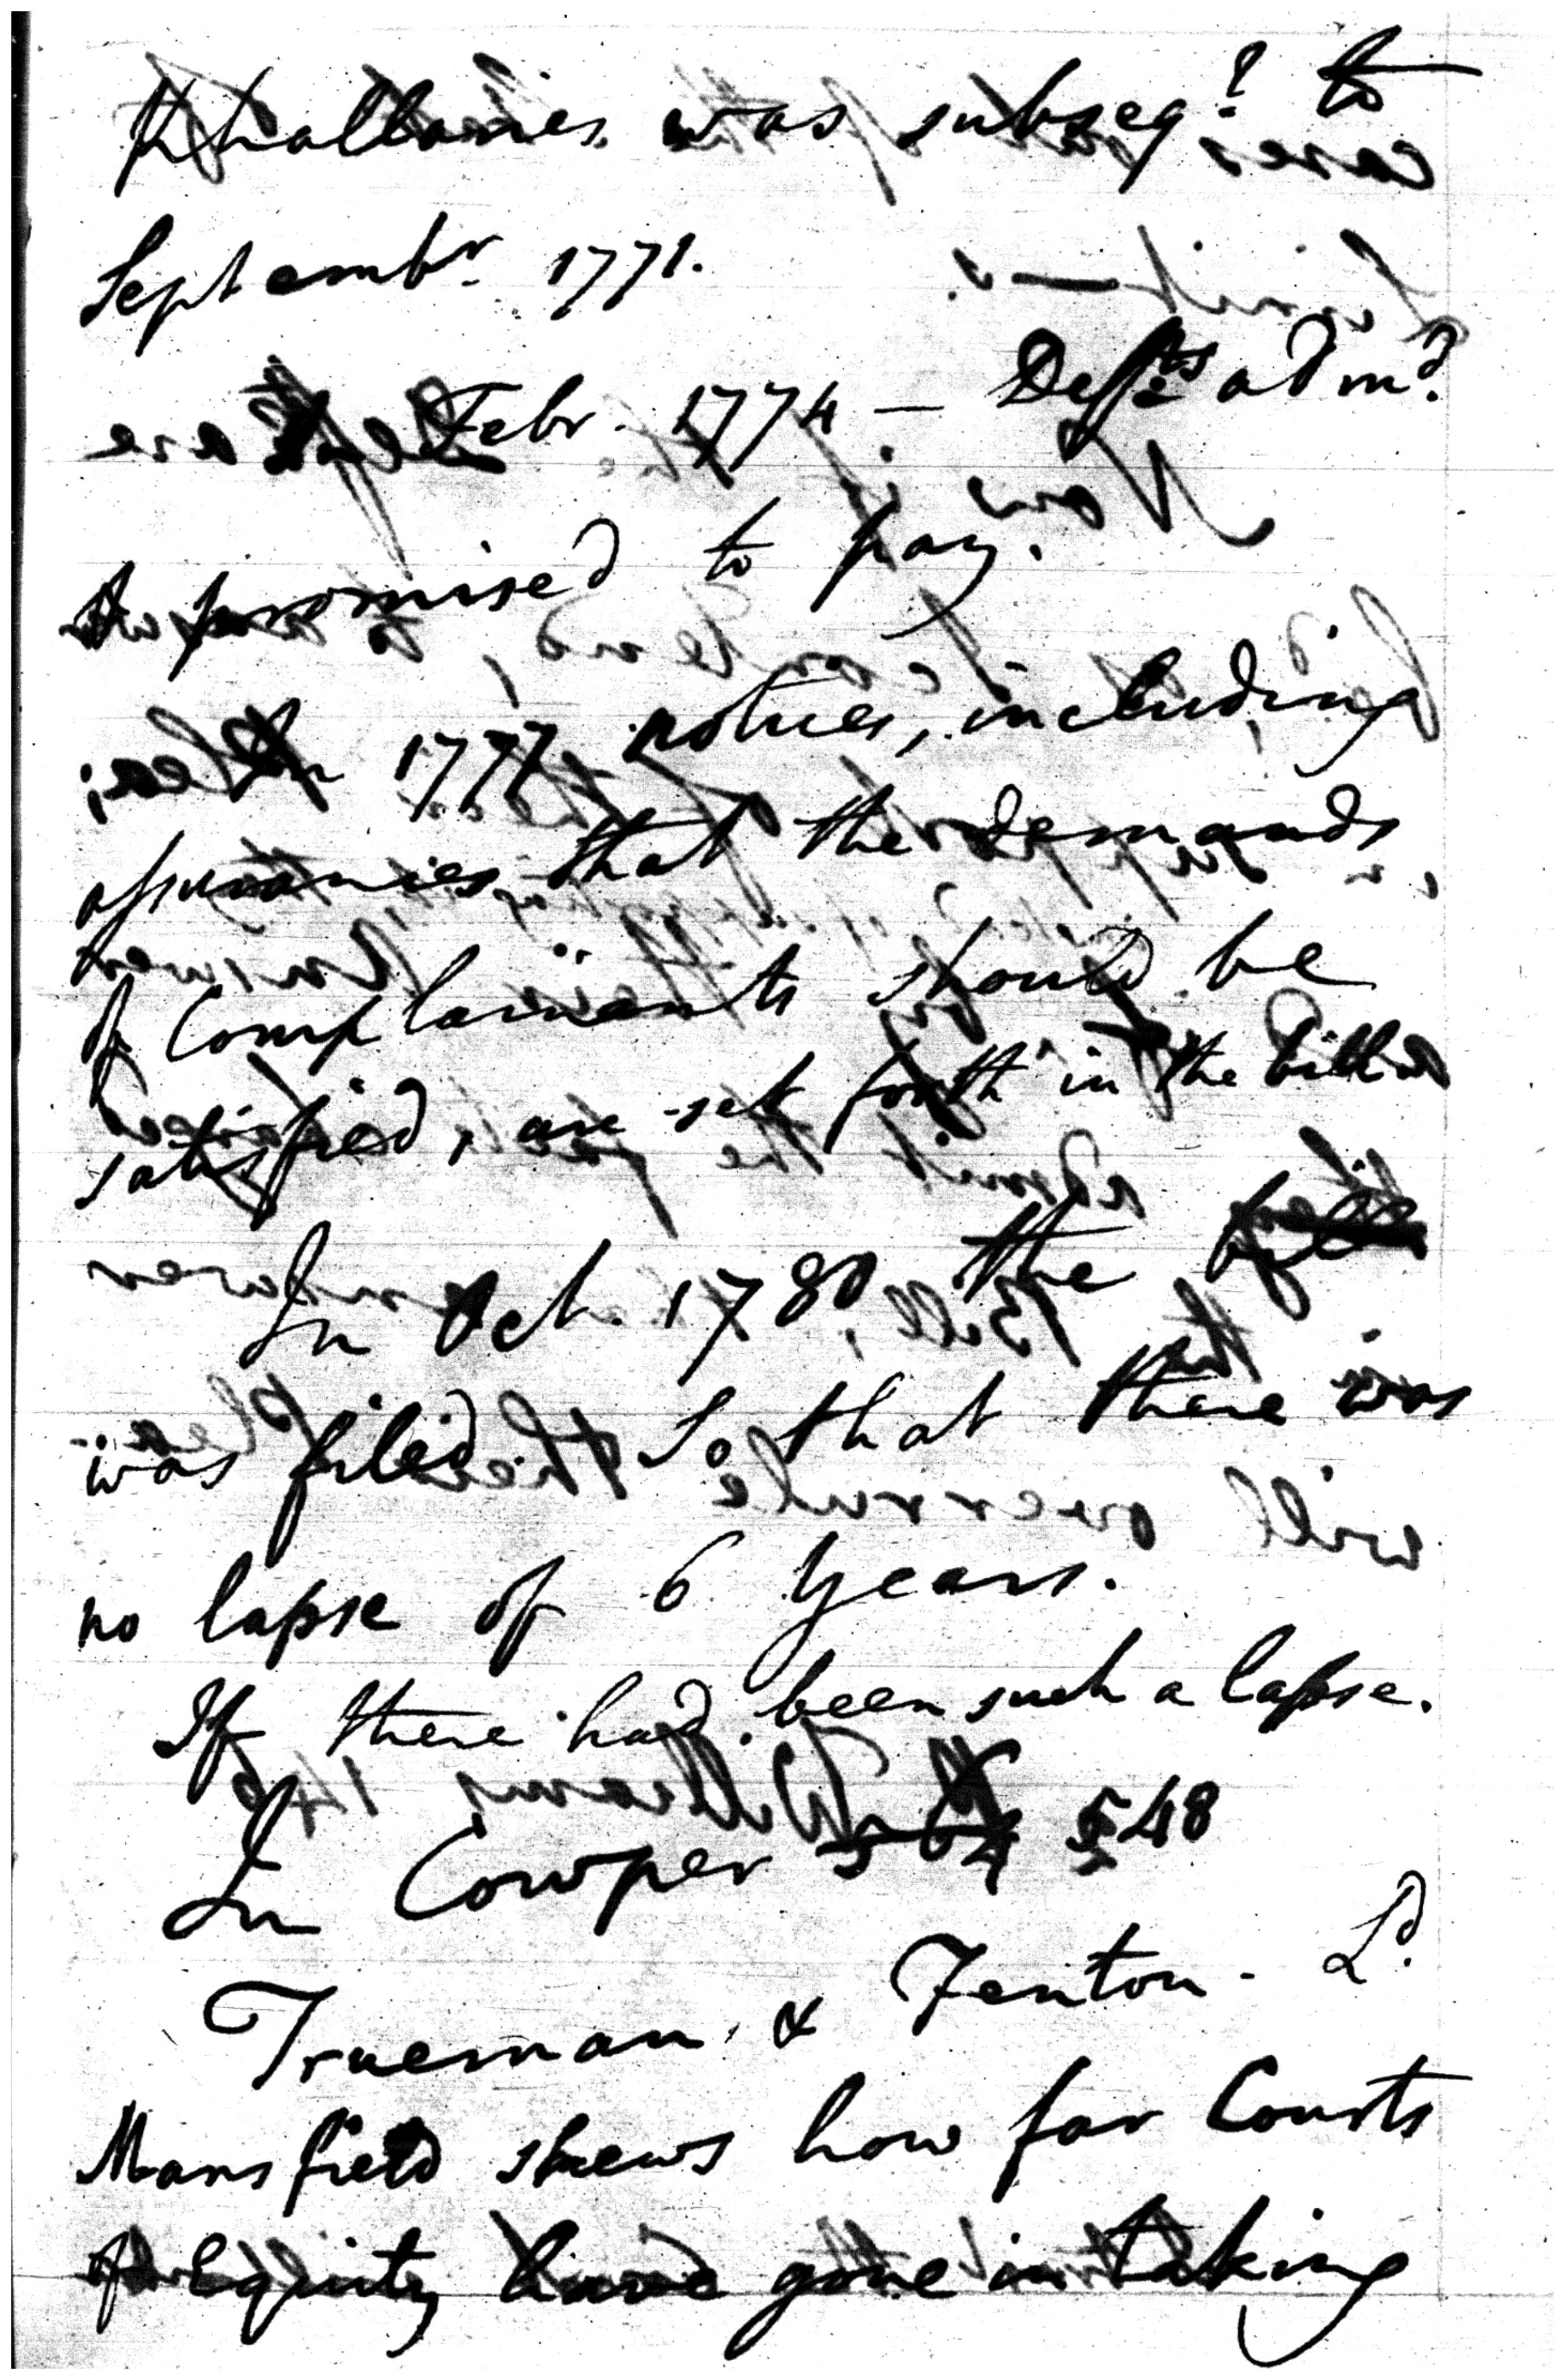 Khallasies was subseqt. to
Septembr. 1771.
Febr. 1774 — Defts. admd.
& promised to pay.
In 1777 notices, including
assurances that the demands
of Complainants should be
satisfied, are set forth in the bill
In Oct. 1780 the bill
was filed So that there was
no lapse of 6 Years.
If there had been such a lapse.
In Cowper 548
Trueman & Fenton - Ld.
Mansfield shews how far Courts
of Equity have gone in taking